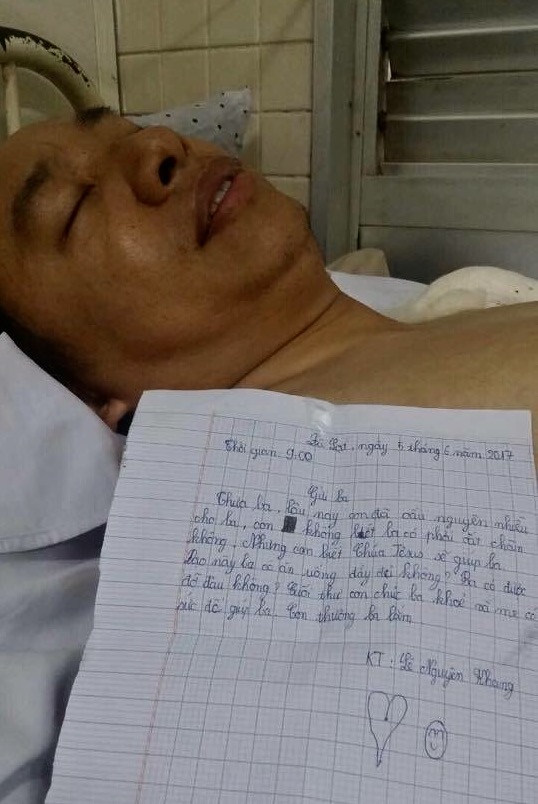 Đà Lạt, ngày 5 tháng 6 năm 2017
Thời gian 9:00
Gửi ba
Thưa ba, lâu nay con đã cầu nguyện nhiều
cho ba, con không biết ba có phải cắt chân
không. Nhưng con biết Chúa Jêxus sẽ giúp ba.
Dạo này ba có ăn uống đầy đủ không? Ba có được
đỡ đau không? Cuối thư con chúc ba khoẻ và mẹ có
sức để giúp ba. Con thương ba lắm
KT: Lê Nguyên Khang